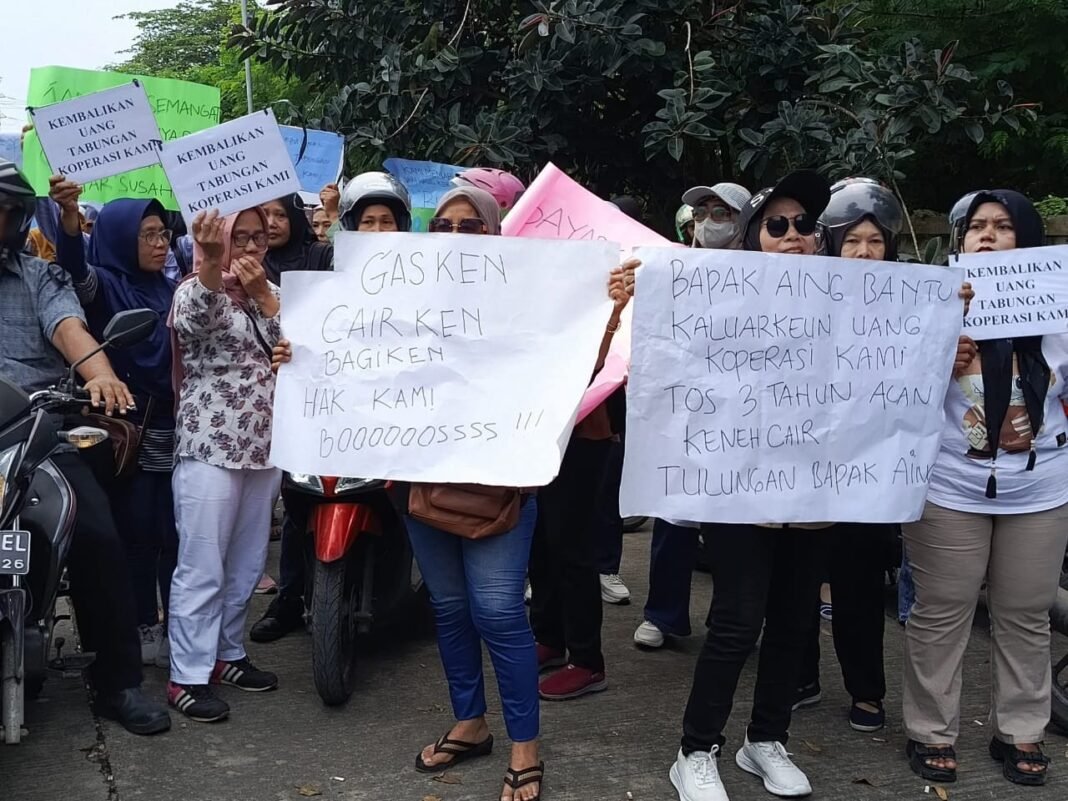 SEMANGAT
SUSAH
KEMBALIKAN
UANG
TABUNGAN
KOPERASI KAMI
KEMBALIKAN
UANG
TABUNGAN
KOPERASI KAMI
GASKEN
CAIRKEN
BAGIKEN
HAK KAMI
BOOOOOOSSSS !!!
BAPAK AING BANTU
KALUARKEUN UANG
KOPERASI KAMI
TOS 3 TAHUN ACAN
KENEH CAIR
TULUNGAN BAPAK AING
KEMBALIKAN
UANG
TABUNGAN
KOPERASI KAMI
EL
26